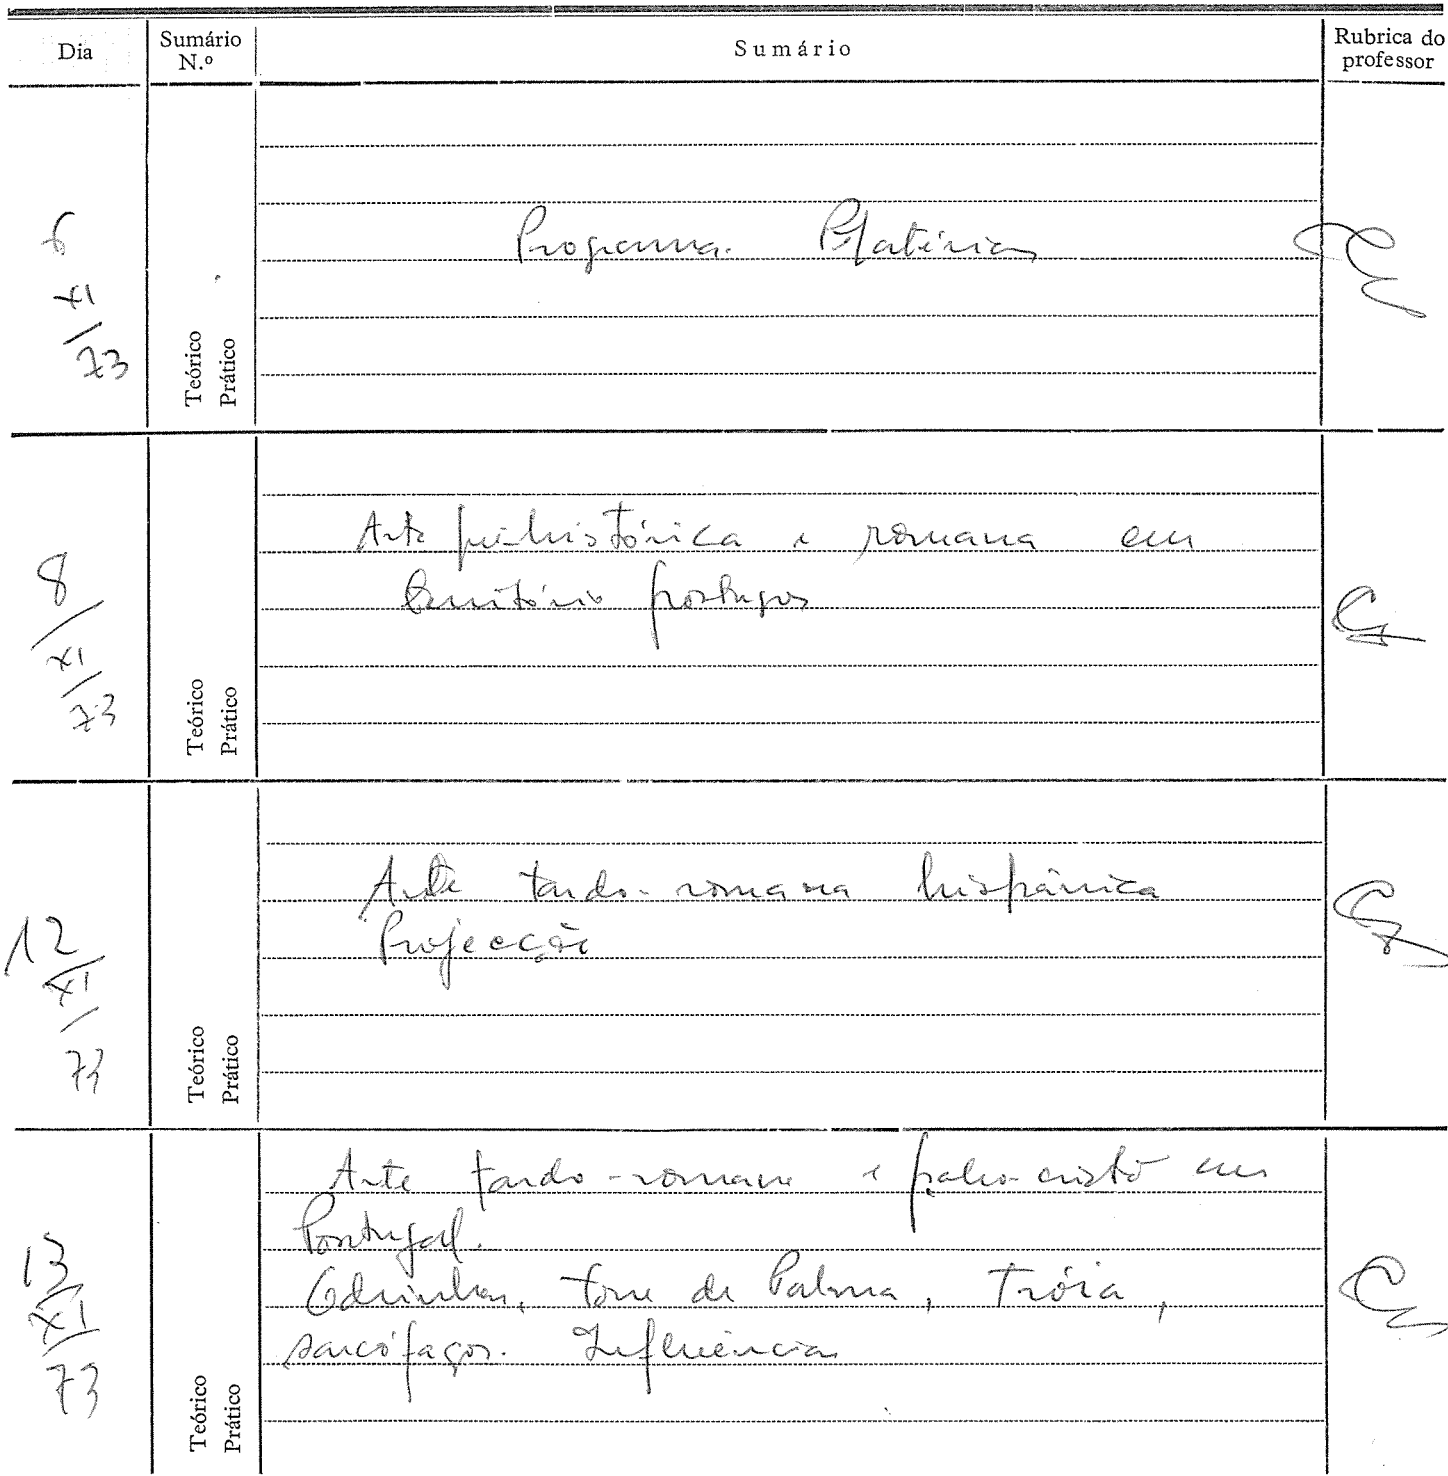 Dia
Sumário N.º
Sumário
Rubrica do professor
6/XI/73
Teórico
Prático
Programa. Matérias
8/XI/73
Teórico
Prático
Arte pré-histórica e romana em
território portugues
12/XI/73
Teórico
Prático
Arte tardo-romana hispânica
Projecção
13/XI/73
Teórico
Prático
Arte tardo-romana e paleo-cristã em
Portugal.
Odrinhas, Torre de Palma, Tróia,
sarcófagos. Influências